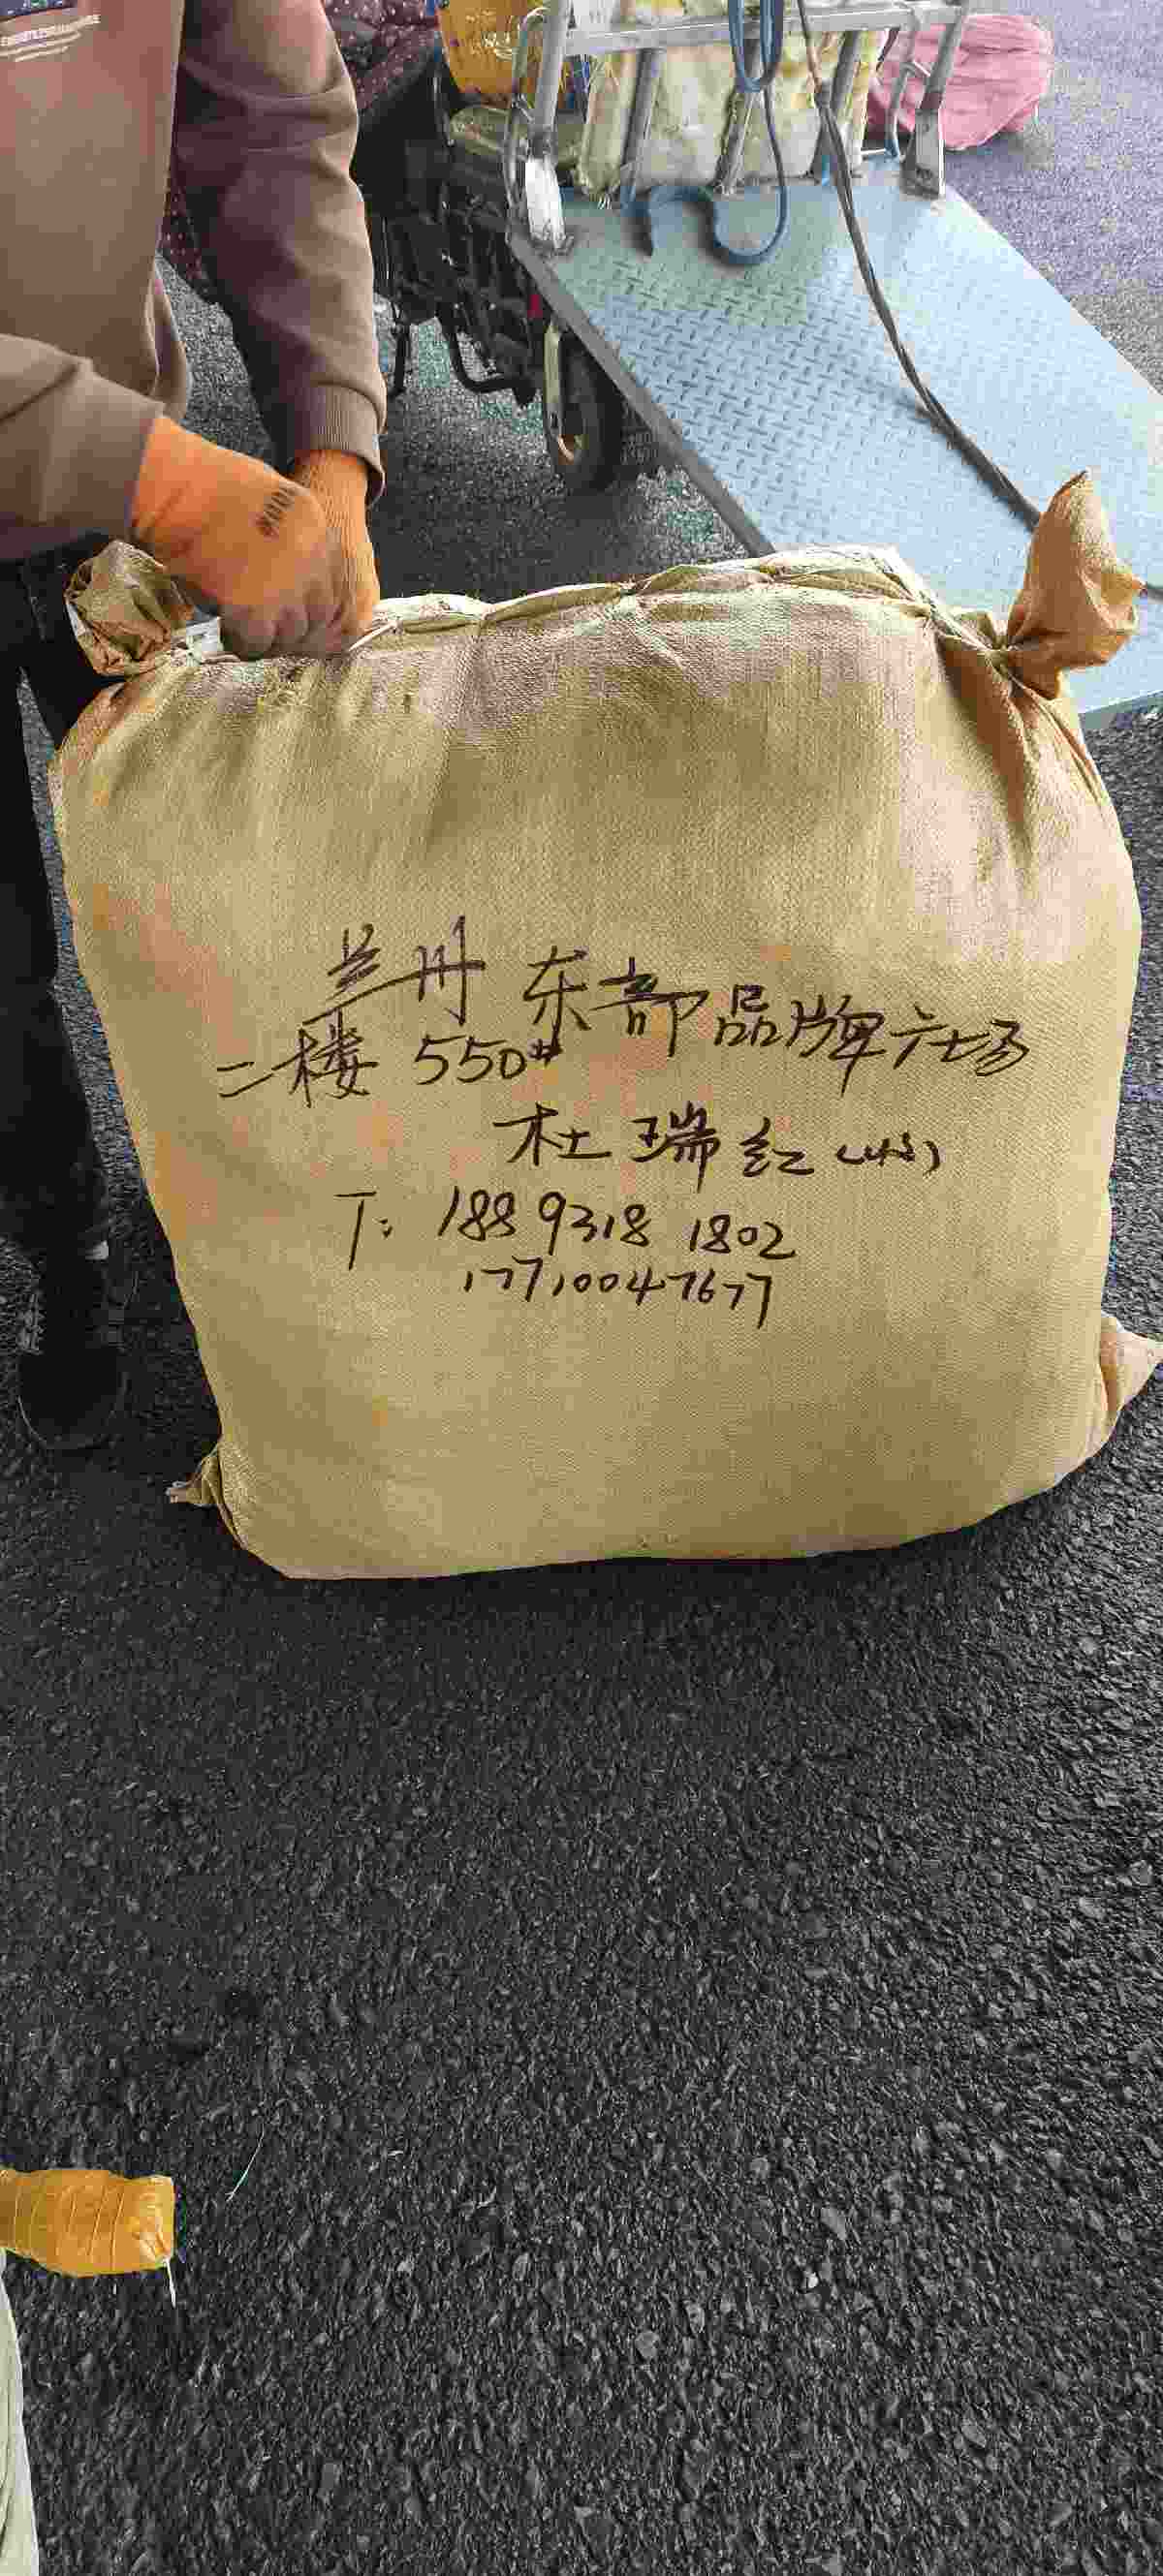 兰州东部品牌广场
二楼 550#
杜瑞红
T: 188 9318 1802
17710047677